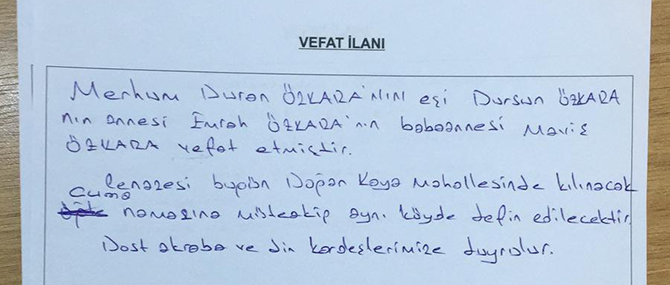 VEFAT İLANI
Merhum Duran ÖZKARA'NIN eşi Dursun ÖZKARA
nın annesi Emrah ÖZKARA'nın babaannesi Maviş
ÖZKARA vefat etmiştir.
Cenazesi bugün Doğan Kaya Mahallesinde kılınacak
Cuma
namazına müteakip aynı köyde defin edilecektir.
Dost akraba ve din kardeşlerimize duyrulur.